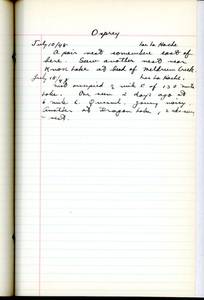 Osprey
July 10/48. Lac La Hache
A pair nest somewhere east of
here. Saw another nest near
Lake at head of Meldrum Creek.
July 18/48 Lac La Hache.
Nest occupied ½ mile E of 130 mile
Lake. One seen 2 days ago at
6 mile L. Quesnel. young noisy.
Another at Dragon Lake,
nest.